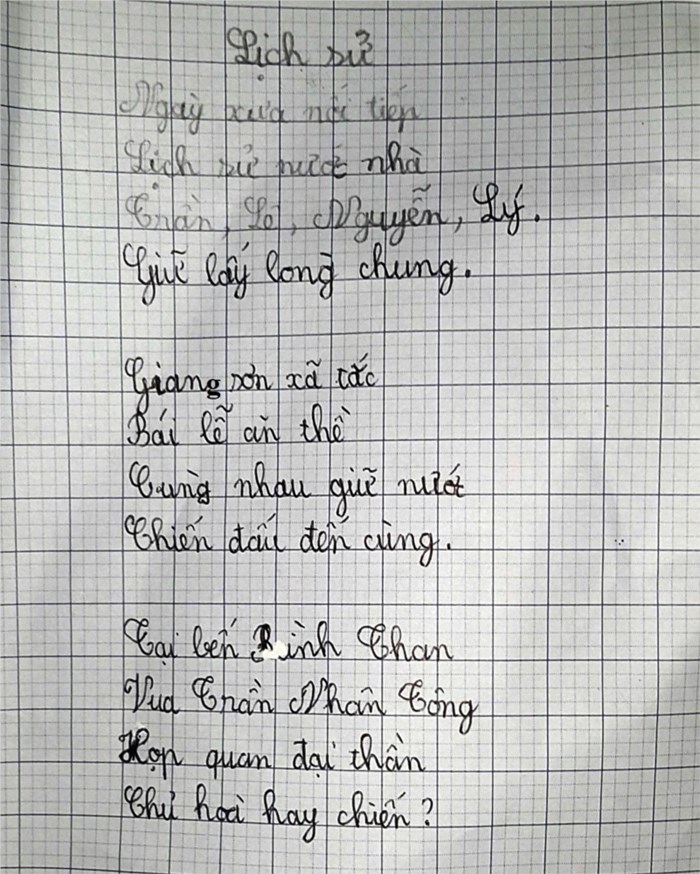 Lịch sử
Ngày xưa nối tiếp
Lịch sử nước nhà
Trần, Lê, Nguyễn, Lý.
Giữ lấy long chung.
Giang sơn xã tắc
Bái lễ ăn thề
Cùng nhau giữ nước
Chiến đấu đến cùng.
Tại bến Bình Than
Vua Trần Nhân Tông
Họp quan đại thần
Thủ hoà hay chiến?